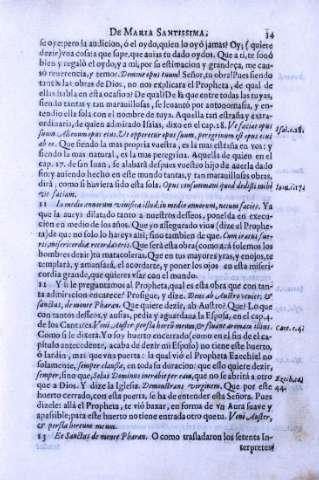 DE MARIA SANTISSIMA. 14
se oyè: pero la audicion, ó el oydo, quien lo oyò jamas? Oy, ( quiere
dezir) vna cosita que supe, que auias tu dado oydos. Que a ti, te sonò
bien y regalò el oydo; y a mi, por su estimacion y grandeça, me cau-
sò reuerencia, y temor. Domine opus tuum! Señor, tu obra! Pues siendo
tantas las obras de Dios, no nos explicarà el Propheta, de qual de
ellas habla en esta ocasiõ? De qual? De la que entre todas las tuyas,
siendo tantas y tan marauillosas, se leuantó por antonomasia, y en-
tendio ella sola con el nombre de tuya. Aquella tan estraña y extra-
ordinaria, de quien admirado Isaias, dixo en el cap. 28. Vt faciat opus
suum: Alienum opus eius. Vt operetur opus suum, peregrinum est opus eius
ab eo. Que siendo la mas propria vuestra, es la mas estraña en vos: y
siendo la mas natural, es la mas peregrina. Aquella de quien en el
cap. 17. de san Iuan, se alabarà despues vuestro hijo de auerla dado
fin y auiendo hecho en este mundo tantas, y tan marauillosas obras,
dirà, como si huuiera sido esta sola. Opus consummaui quod dedisti mihi
vt faciam.
11 In medio annorum viuifica illud, in medio annorum, notum facies. Ya
que la aurys dilatado tanto a nuestros desseos, ponelda en execu-
cion en medio de los años. Que yo asseguro vino (dize el Prophe-
ta) de que no solo lo hareys assi; sino tambien de que. Cum iratus fue-
ris, misericordiæ recordaberis. Que serà esta obra (como acá solemos los
hombres dezir) ta matacoleras. Que en tus mayores yras, y enojos, te
templarà, y amansarà, el acordarte, y poner los ojos en esta miseri-
cordia grande, que quieres vsar con el mundo.
12 Y si le preguntamos al Propheta, qual es esta obra que con tan-
ta admiracion encarece? Prosigue, y dize. Deus ab Austro veniet, &
sanctus, de monte Pharan. Que quiere dezir, ab Austro? Que? Lo que
con tantos desseos, y ansias, pedia y aguardaua la Esposa, en el cap. 4.
de los Cantares. Veni Auster perfla hortũ meum, & fluant aromata illius.
Como si le dixera. Yo soy huerto encerrado (como en el fin de el ca-
pitulo antecedente, acaba de dezir mi Esposo) no tiene este huerto,
ó Iardin, mas que vna puerta: la qual viò el Propheta Ezechiel no
solamente, semper clausa, en toda su duracion: que esso quiere dezir,
semper, sino que, Solus Dominus ingredietur per eam, que no se abrirà a otro
que a Dios. Y dize la Iglesia. Demonstrans virginem. Que por este
huerto cerrado, con esta puerta, se ha de entender esta Señora. Pues
dizele: allà el Propheta, te viò baxar, en forma de vn Aura suaue y
apasible, para este huerto no tiene entrada otro que tu. Veni Auster,
& perfla hortum meum.
13 Et Sanctus de monte Pharan. O como trasladaron los setenta In-
terpretes
Isai. c. 28.
Ioan. c. 17.
Cant. c. 4.
Ezech. 44